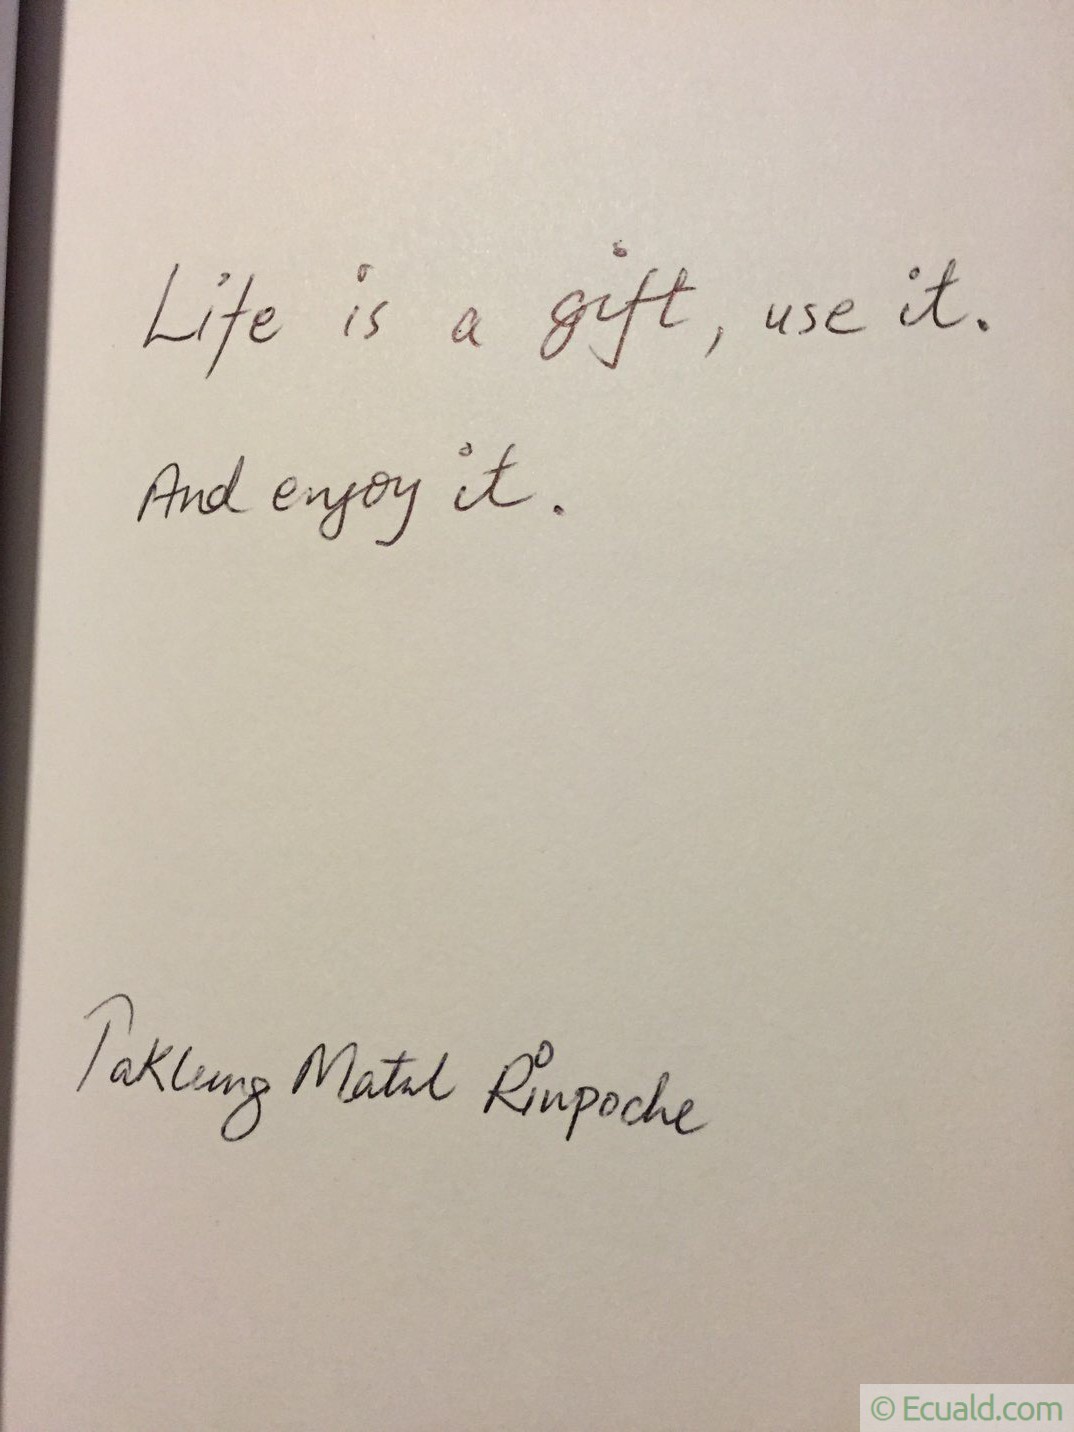 Life is a gift, use it.
And enjoy it.
Taklung Matul Rinpoche
© Ecuald.com